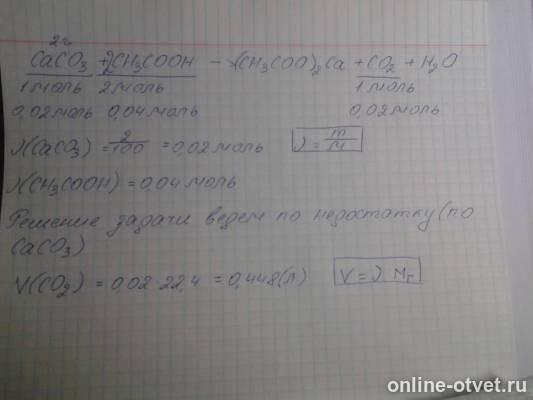 2г
CaCO3 + 2CH3COOH → (CH3COO)2Ca + CO2 + H2O
1моль 2моль 1моль
0,02моль 0,04моль 0,02моль
ν(CaCO3) = 2/100 = 0,02моль ν = m/M
ν(CH3COOH) = 0,04моль
Решение задачи ведем по недостатку (по
CaCO3)
V(CO2) = 0,02·22,4 = 0,448(л) V = ν Mr
online-otvet.ru